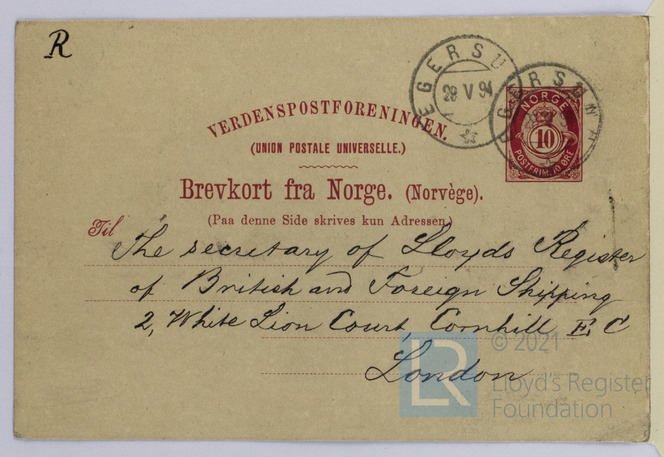 R
EGERSU
28 V 94
EGERSUND
NORGE
10
POSTFRIM. 10 ØRE
VERDENSPOSTFORENINGEN.
(UNION POSTALE UNIVERSELLE.)
Brevkort fra Norge. (Norvège).
(Paa denne Side skrives kun Adressen.)
Til
The secretary of Lloyds Register
of British and Foreign Shipping
2, White Lion Court Cornhill E, C
London
LR
© 2021
Lloyd's Register
Foundation